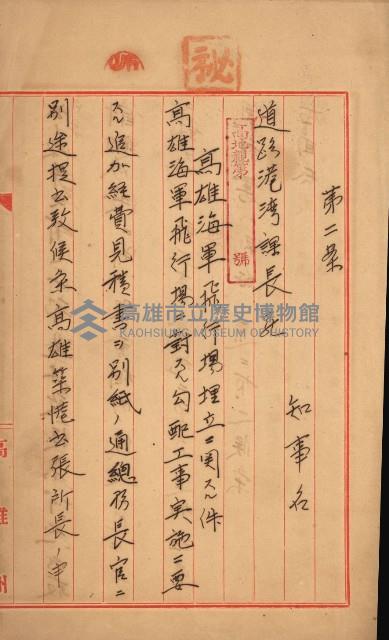 秘
第二案
知事名
道路港湾課長宛
高地親第 號
高雄海軍飛行場埋立ニ関スル件
高雄海軍飛行場ニ対スル勾配工事実施ニ要
スル追加経費見積書ヲ別紙ノ通總務長官ニ
別途提出致候条高雄築港出張所長ノ申
高雄市立歷史博物館
KAOHSIUNG MUSEUM OF HISTORY
高雄州